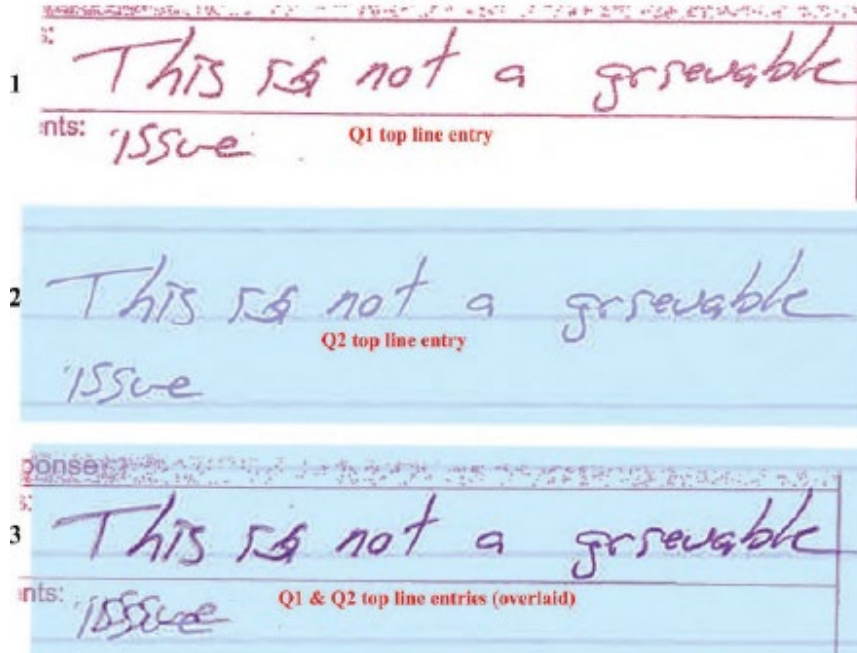 s:
1 This is not a grievable
nts: issue
Q1 top line entry
2 This is not a grievable
Q2 top line entry
issue
ponse:
s:
3 This is not a grievable
nts:
Q1 & Q2 top line entries (overlaid)
issue